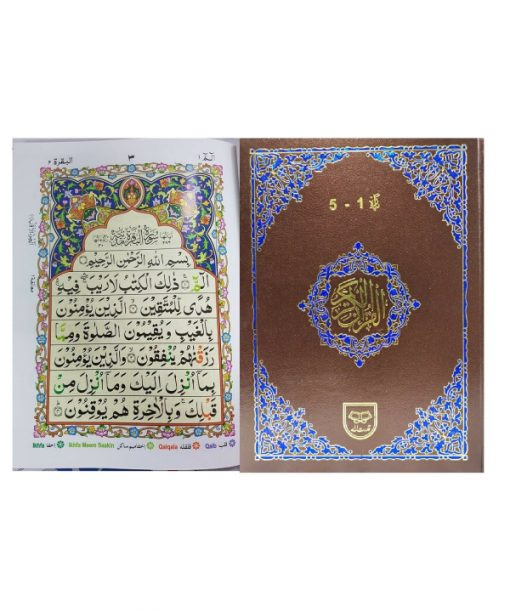 البقرة ٢
٣
الٓمّٓ ١
سُوْرَةُ الْبَقَرَةِ مَدَنِيَّةٌ
بِسْمِ اللّٰهِ الرَّحْمٰنِ الرَّحِيْمِ
الٓمّٓ ۚ ذٰلِكَ الْكِتٰبُ لَا رَيْبَ ۛ فِيْهِ ۛ
هُدًى لِّلْمُتَّقِيْنَ ۙ الَّذِيْنَ يُؤْمِنُوْنَ
بِالْغَيْبِ وَيُقِيْمُوْنَ الصَّلٰوةَ وَمِمَّا
رَزَقْنٰهُمْ يُنْفِقُوْنَ ۙ وَالَّذِيْنَ يُؤْمِنُوْنَ
بِمَآ اُنْزِلَ اِلَيْكَ وَمَآ اُنْزِلَ مِنْ
قَبْلِكَ ۚ وَبِالْاٰخِرَةِ هُمْ يُوْقِنُوْنَ
Ikhfa اخفا Ikhfa Meem Saakin اخفا میم ساکن Qalqala قلقله Qalb قلب
5 - 1
القرآن الكريم